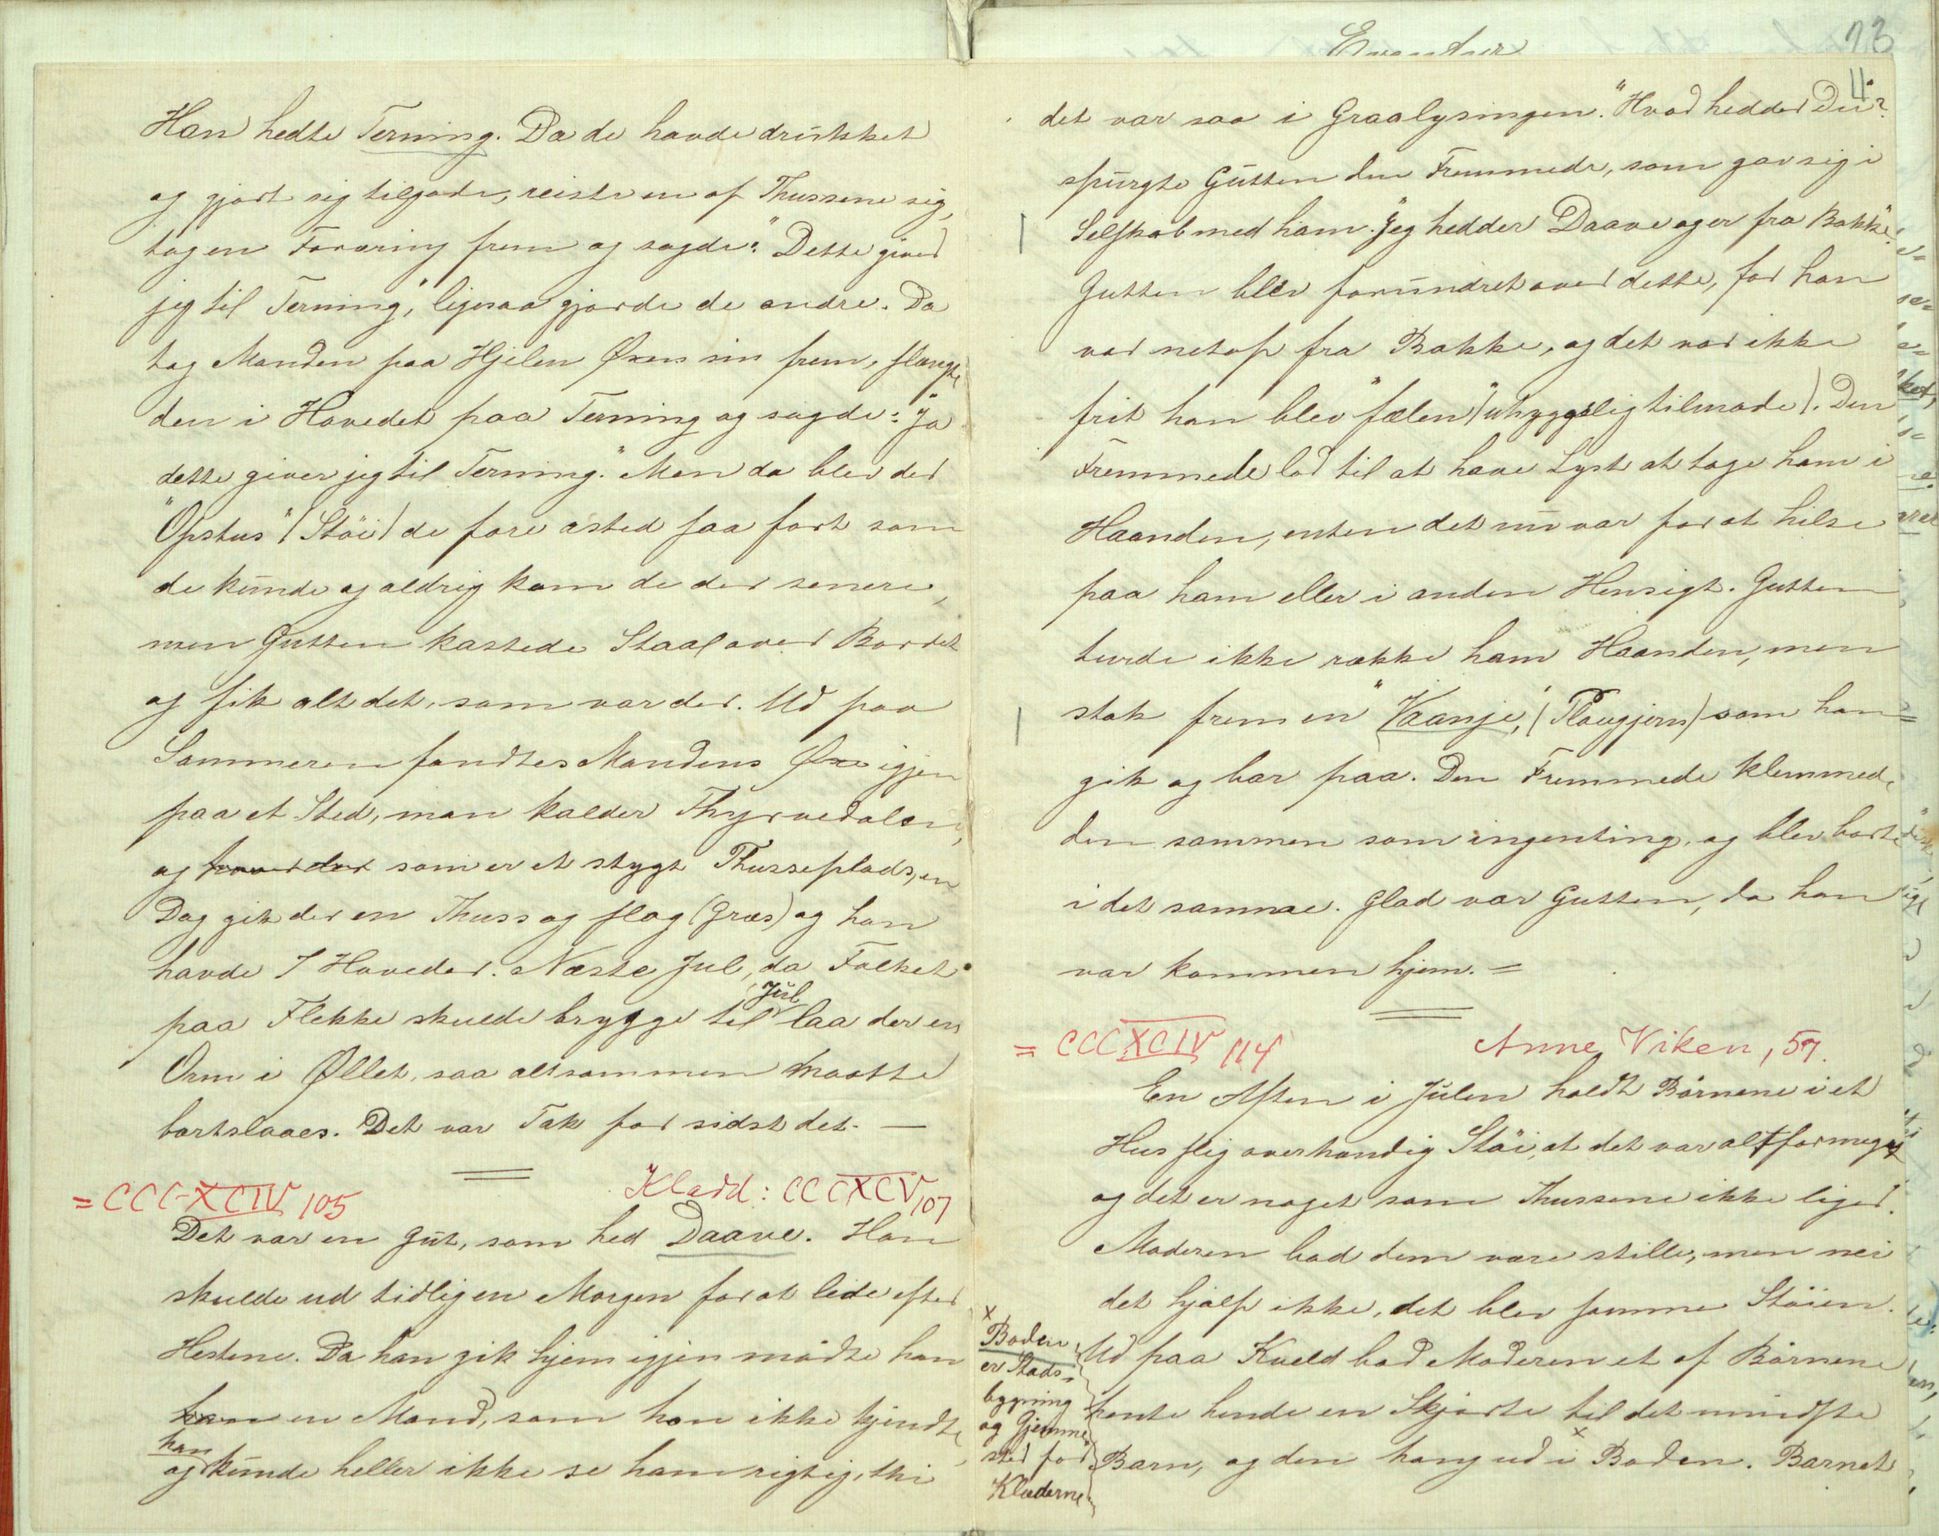 Han hedte Terning. Da de havde drukket
og gjort sig tilgode, reiste en af Thussene sig,
tog en Foræring frem og sagde: "Dette giver
jeg til Terning", ligesaa gjorde de andre. Da
tog Manden paa Hjelen Øxen sin frem, slængte
den i Hovedet paa Terning og sagde: "Ja
dette giver jeg til Terning." Men da blev der
"Opstus" (Støi) de fore asted saa fort som
de kunde og aldrig kom de der senere,
men Gutten kastede Staal over Bordet
og fik alt det, som var der. Ud paa
Sommeren fandtes Mandens Øxe igjen
paa et Sted, man kalder Thyrvedalen,
og hvor der som er et stygt Thusseplads, en
Dag gik der en Thuss og slog (Græs) og han
havde 7 Hoveder. Næste Jul, da Folket
paa Flekke skulde brygge til Jul laa der en
Orm i Øllet, saa altsammen maatte
bortslaaes. Det var Tak for sidst det. —
= CCCXCIV 105 Kladd: CCCXCV, 107
Det var en Gut, som hed Daave. Han
skulde ud tidlig en Morgen for at lede efter
Hestene. Da han gik hjem igjen mødte han
ham en Mand, som han ikke kjendte,
og han kunde heller ikke se ham rigtig, thi
73
11
det var saa i Graalysingen. "Hvad hedder Du"?
spurgte Gutten den Fremmede, som gav sig i
Selskab med ham. "Jeg hedder Daave og er fra Bakke".
Gutten blev forundret over dette, for han
var netop fra Bakke, og det var ikke
frit han blev "fælen" (uhyggelig tilmode). Den
Fremmede lod til at have Lyst at tage ham i
Haanden, enten det nu var for at hilse
paa ham eller i anden Hensigt. Gutten
turde ikke række ham Haanden, men
stak frem en "Vaanje", (Plougjern) som han
gik og bar paa. Den Fremmede klemmed,
den sammen som ingenting, og blev borte
i det samme. Glad var Gutten, da han
var kommen hjem. =
= CCCXCIV 114 Anne Viken, 57.
En Aften i Julen holdt Børnene i et
Hus slig overhændig Støi, at det var altformeget
og det er noget som Thussene ikke liger.
Moderen bad dem være stille, men nei
det hjalp ikke, det blev samme Støien.
Ud paa Kveld bad Moderen et af Børnene
hente hende en Skjorte til det mindste
Barn, og den hang ud i x Boden. Barnet
x Boden
er Stads-
bygning
og Gjemme
sted for
Klæderne